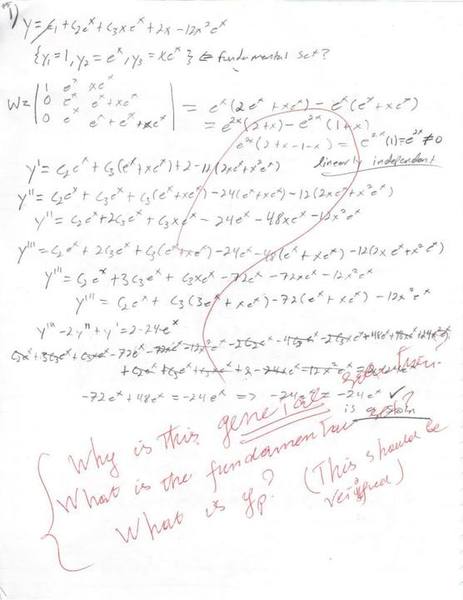 1) y = c₁ + c₂eˣ + c₃xeˣ + 2x - 12x²eˣ
{y₁=1, y₂=eˣ, y₃=xeˣ} ← fundamental set?
W = | 1 eˣ xeˣ | = eˣ(2eˣ + xeˣ) - eˣ(eˣ + xeˣ)
| 0 eˣ eˣ+xeˣ | = e²ˣ(2+x) - e²ˣ(1+x)
| 0 eˣ eˣ+eˣ+xeˣ | e²ˣ(2+x-1-x) = e²ˣ(1) = e²ˣ ≠ 0
linearly independent
y' = c₂eˣ + c₃(eˣ+xeˣ) + 2 - 12(2xeˣ+x²eˣ)
y'' = c₂eˣ + c₃eˣ + c₃(eˣ+xeˣ) - 24(eˣ+xeˣ) - 12(2xeˣ+x²eˣ)
y'' = c₂eˣ + 2c₃eˣ + c₃xeˣ - 24eˣ - 48xeˣ - 12x²eˣ
y''' = c₂eˣ + 2c₃eˣ + c₃(eˣ+xeˣ) - 24eˣ - 48(eˣ+xeˣ) - 12(2xeˣ+x²eˣ)
y''' = c₂eˣ + 3c₃eˣ + c₃xeˣ - 72eˣ - 72xeˣ - 12x²eˣ
y''' = c₂eˣ + c₃(3eˣ + xeˣ) - 72(eˣ + xeˣ) - 12x²eˣ
y''' - 2y'' + y' = 2 - 24eˣ
-72eˣ + 48eˣ = -24eˣ => -24eˣ = -24eˣ ✓
is a soln
Why is this general solution?
What is the fundamental set?
What is yp? (This should be
verified)